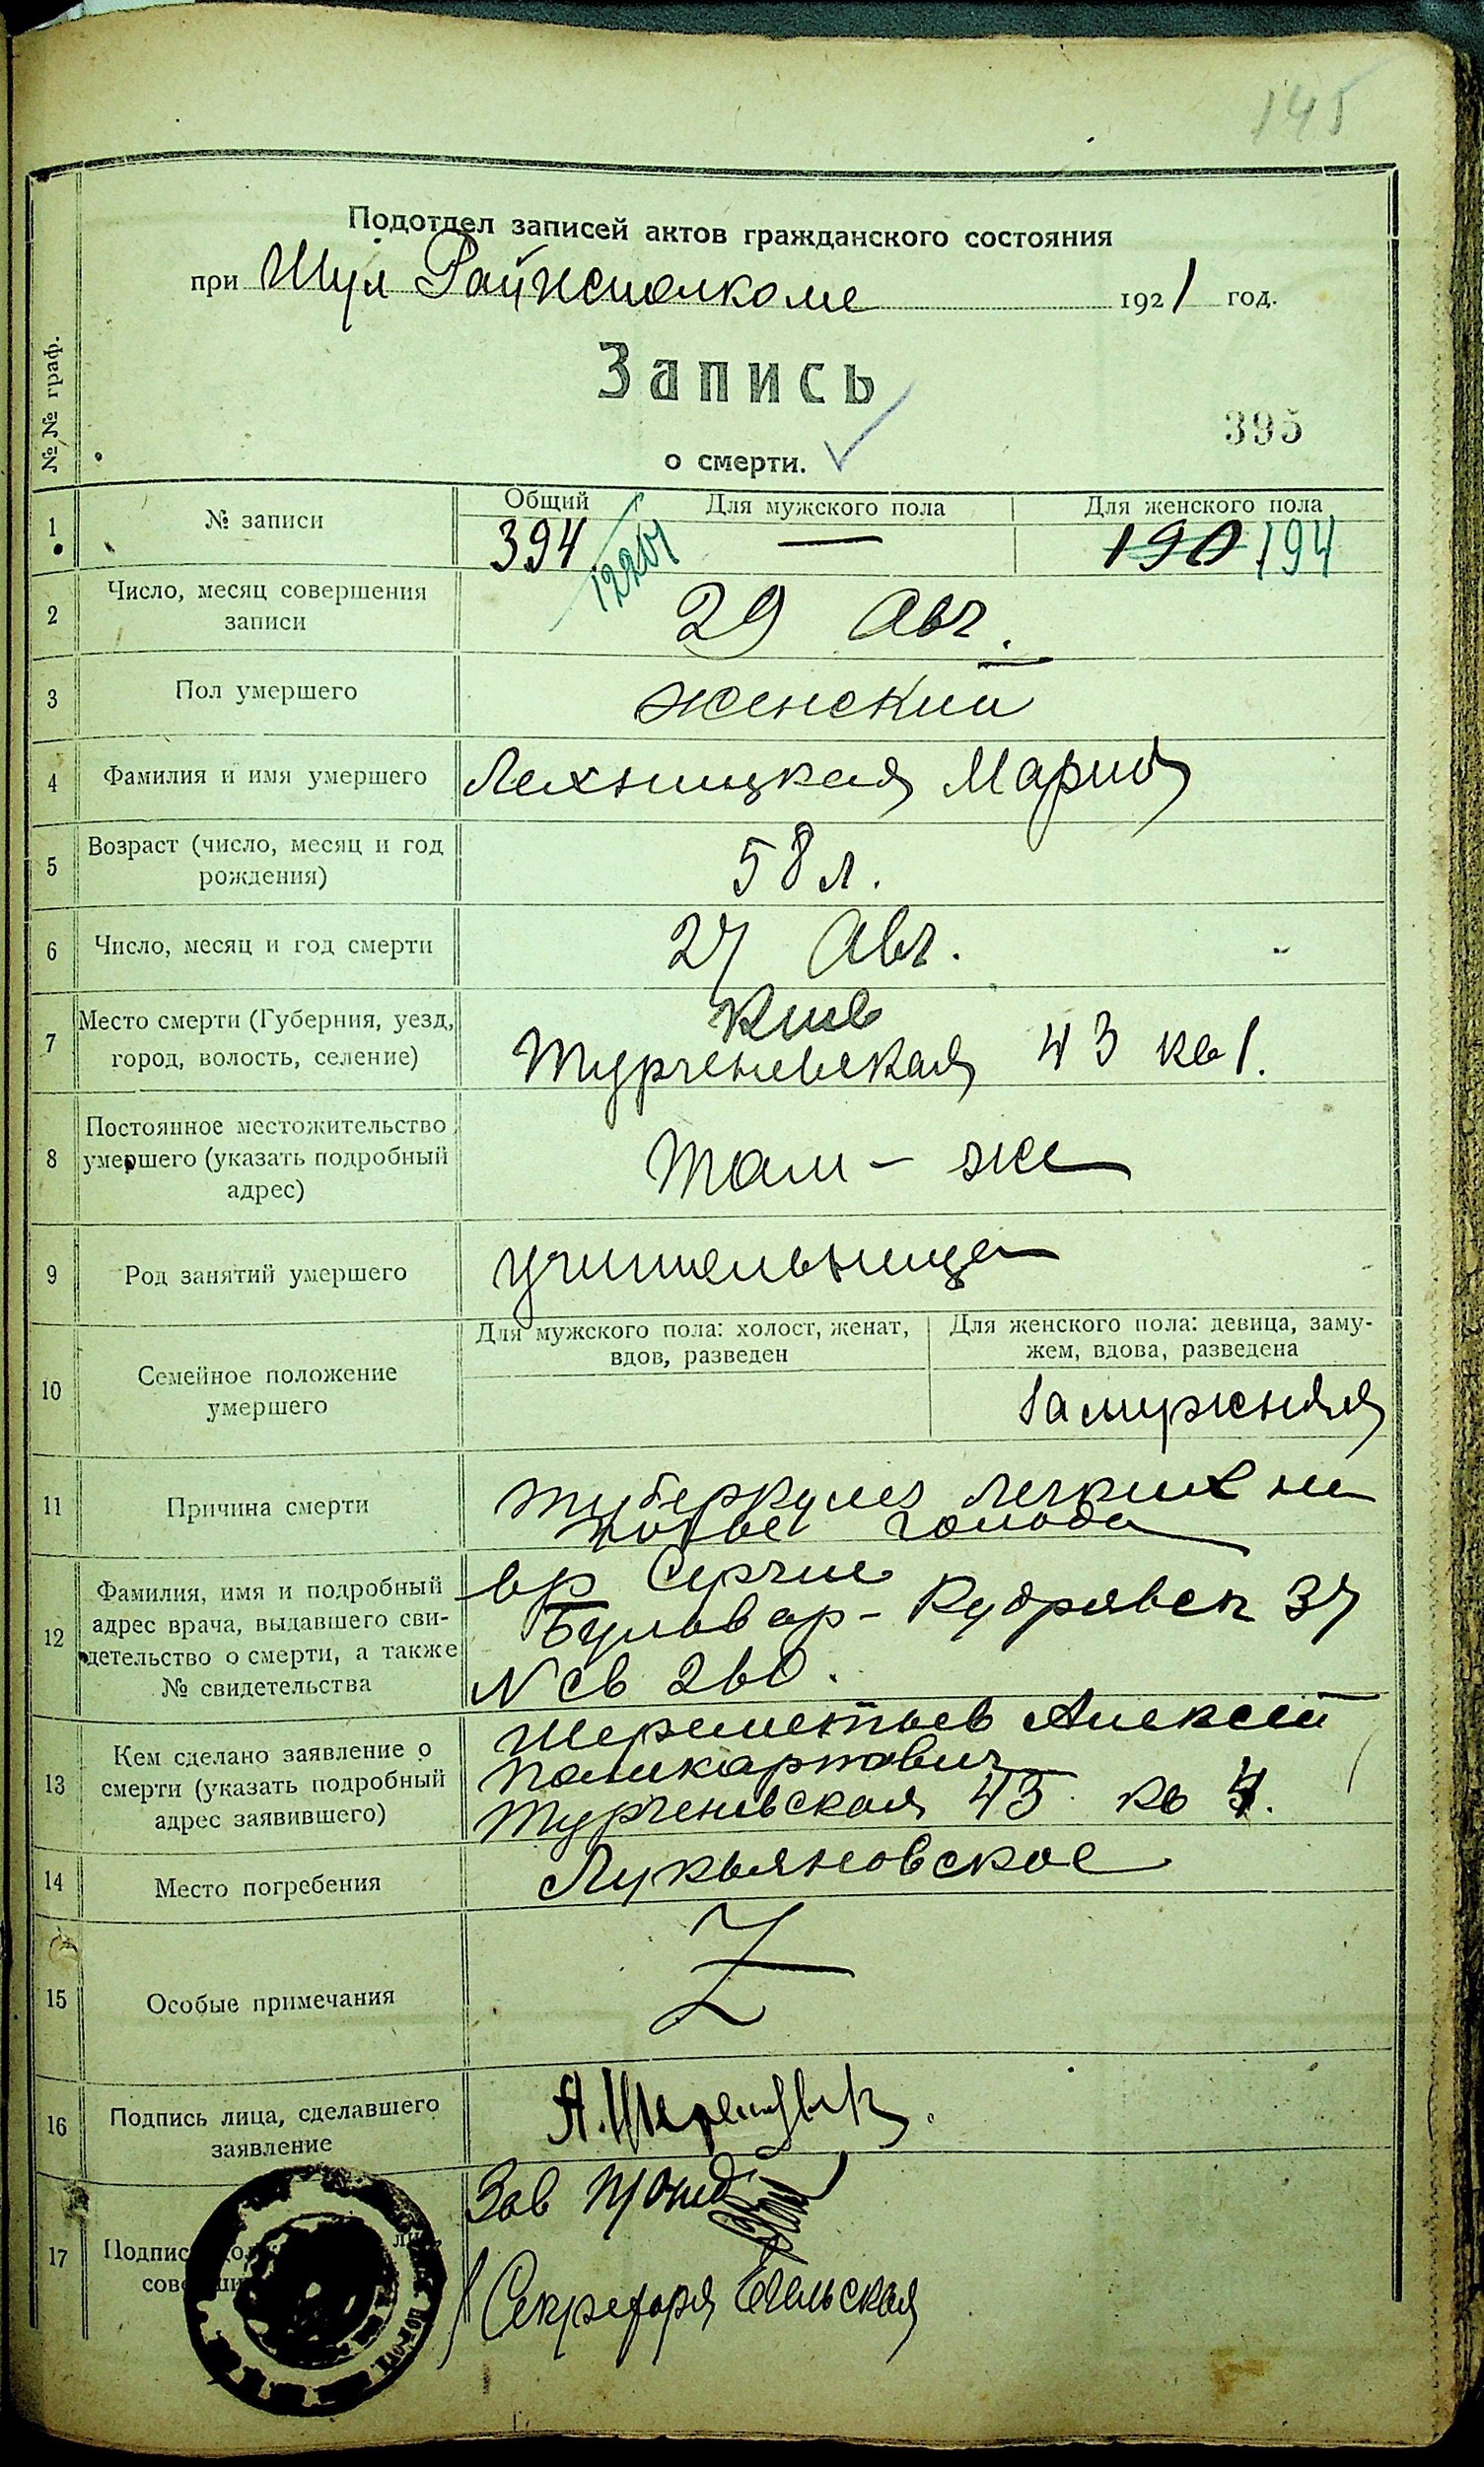 145
Подотдел записей актов гражданского состояния
при Шул Райисполкоме 1921 год.
Запись
395
о смерти.
№ № граф.
1 № записи Общий Для мужского пола Для женского пола
394 — 190 194
2 Число, месяц совершения записи 29 Авг.
3 Пол умершего женский
4 Фамилия и имя умершего Лехницкая Мария
5 Возраст (число, месяц и год рождения) 58 л.
6 Число, месяц и год смерти 27 Авг.
7 Место смерти (Губерния, уезд, город, волость, селение) Киев
Тургеневская 43 кв 1.
8 Постоянное местожительство умершего (указать подробный адрес) Там - же
9 Род занятий умершего учительница
10 Семейное положение умершего Для мужского пола: холост, женат, вдов, разведен Для женского пола: девица, замужем, вдова, разведена
Замужняя
11 Причина смерти туберкулез легких на
почве голода
12 Фамилия, имя и подробный адрес врача, выдавшего свидетельство о смерти, а также № свидетельства вр
Бульвар - Кудрявск 37
N св 260.
13 Кем сделано заявление о смерти (указать подробный адрес заявившего) Шереметьев Алексей
Поликарпович
Тургеневская 43 кв
14 Место погребения Лукьяновское
15 Особые примечания Z
16 Подпись лица, сделавшего заявление
17 Зав
Секретаря